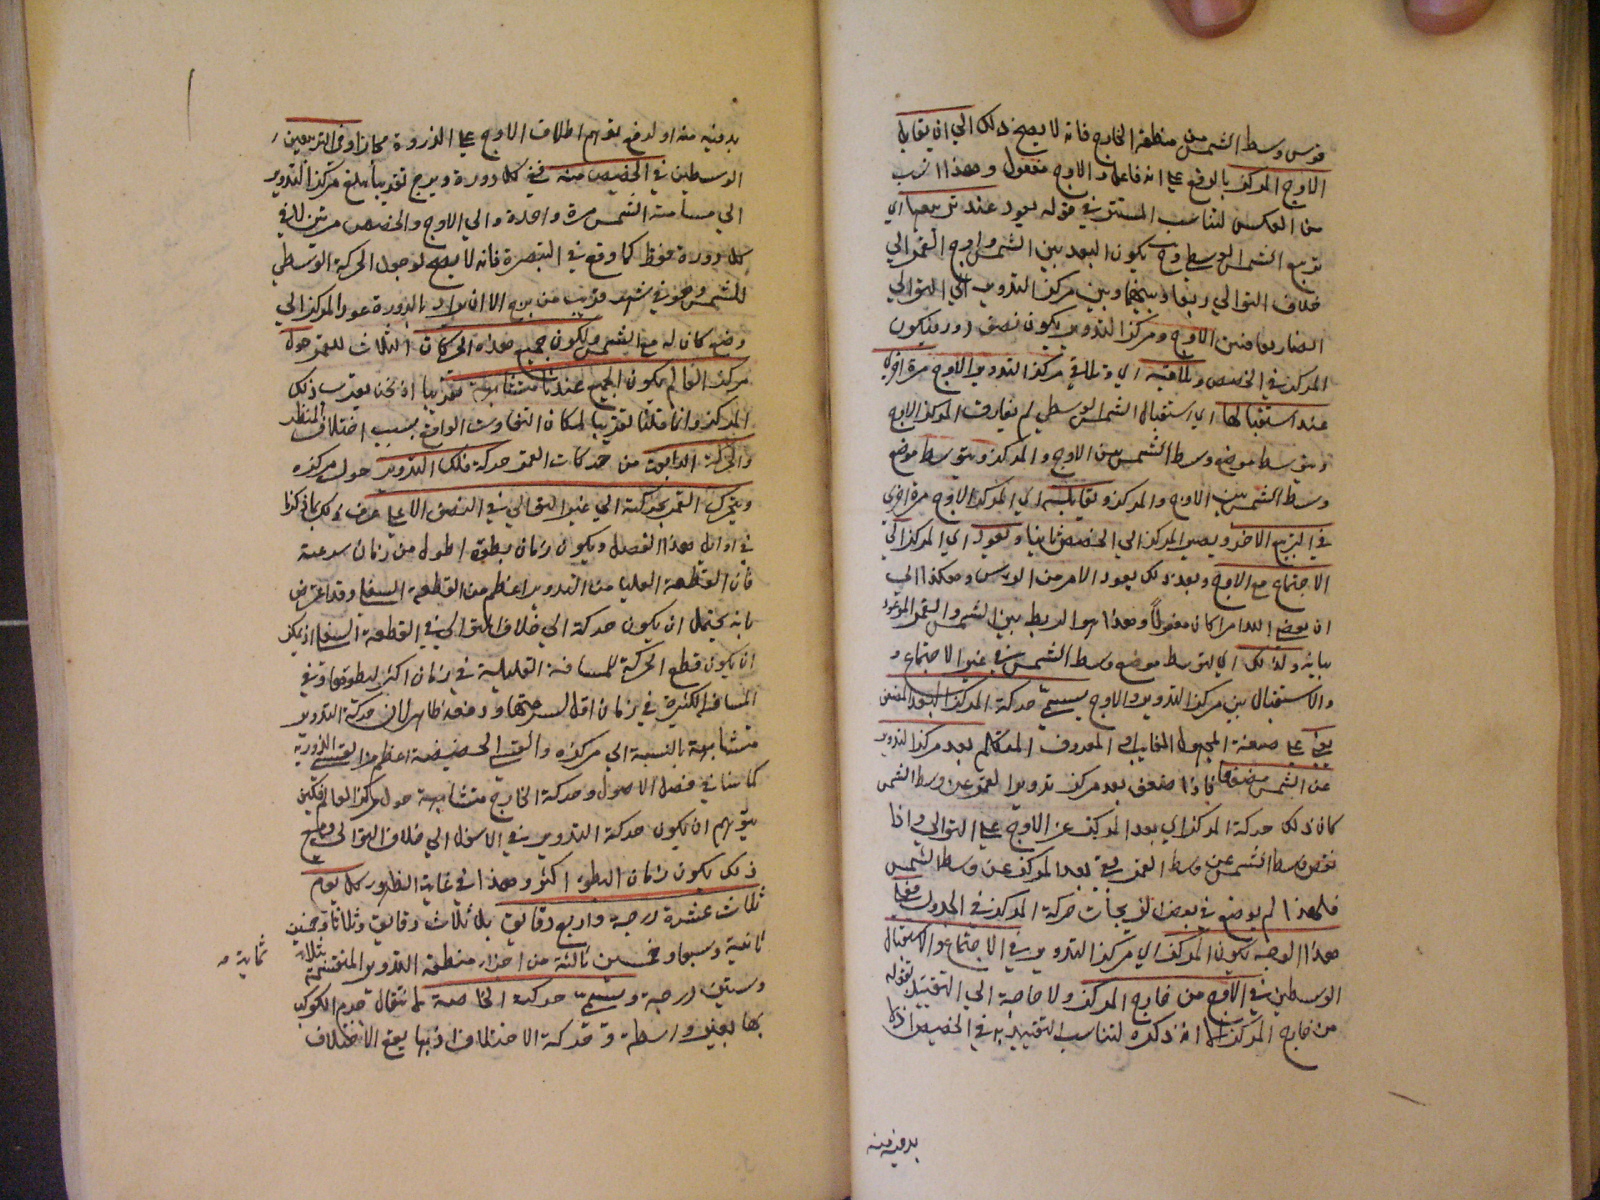 قوس وسط الشمس من منطقة الخارج فانه لا يصح ذلك الي ان يقابل
الاوج المركز بالرفع علي انه فاعل والاوج مفعول وهذا انسب
من العكس لتناسب المستتر في قوله يعود عند تربيعها اي
تربيع الشمس الوسطي وح يكون البعد بين الشمس واوج القمر الي
خلاف التوالي ربعا وبينها وبين مركز التدوير الي التوالي
ايضا ربعا فبين الاوج ومركز التدوير يكون نصف دور فيكون
المركز في الحضيض ويلاقيه اي ويلاقي مركز التدوير الاوج مرة اخري
عند استقبالها اي استقبال الشمس الوسطي لم يفارق المركز الاوج
ويتوسط موضع وسط الشمس بين الاوج والمركز ويتوسط موضع
وسط الشمس بين الاوج والمركز ويقابله اي المركز الاوج مرة اخري
في التربيع الاخر ويصير المركز الي الحضيض ثانيا ويعود اي المركز الي
الاجتماع مع الاوج وبعد ذلك يعود الامر من الراس وهكذا الي
ان يقضي الله امرا كان مفعولا وهذا هو الربط بين الشمس والقمر الموعود
بيانه ولذلك اي لتوسط موضع وسط الشمس في غير الاجتماع و
والاستقبال بين مركز التدوير والاوج يسمي حركة المركز البعد المضعف
يعني علي صيغة المجهول الغايب او المعروف المتكلم بعد مركز التدوير
عن الشمس مضعفا فاذا ضعف بعد مركز تدوير القمر عن وسط الشمس
كان ذلك حركة المركز اي بعد المركز عن الاوج علي التوالي واذا
نقص وسط الشمس عن وسط القمر بقي بعد المركز عن وسط الشمس
فلهذا لم يوضع في بعض الزيجات حركة المركز في الجدول فعلي
هذا الوجه يكون المركز اي مركز التدوير في الاجتماع والاستقبال
الوسطين في الاوج من خارج المركز ولا حاجة الي التقييد بقوله
من خارج المركز الا انه ذكره لتناسب التقييد به في الحضيض اذ لا
بد فيه منه
بد فيه منه او لدفع توهم اطلاق الاوج علي الذروة مجازا وفي التربيعين
الوسطين في الحضيض منه ففي كل دورة وبرج تقريبا يبلغ مركز التدوير
الي مسامتة الشمس مرة واحدة والي الاوج والحضيض مرتين لا في
كل دورة فقط كما وقع في التبصرة فانه لا يصح لوجول الحركة الوسطي
للشمس وهو في شهر قريب من برج الا ان يراد بالدورة عود المركز الي
وضع كان له مع الشمس ويكون جميع هذه الحركات الثلاث للقمر حول
مركز العالم يكون الجميع عندنا متشابهة تقريبا اذ نحن بقرب ذلك
المركز وانما قلنا تقريبا لمكان التفاوت الواقع بسبب اختلاف المنظر
والحركة الرابعة من حركات القمر حركة فلك التدوير حول مركزه
ويتحرك القمر بحركته الي غير التوالي في النصف الاعلي عرف ذلك مما ذكرنا
في اوايل هذا الفصل ويكون زمان بطوئه اطول من زمان سرعته
فان القطعة العليا من التدوير اعظم من القطعة السفلي وقد اعترض
بانه يحتمل ان يكون حركة الي خلاف التوالي في القطعة السفلي اذ يمكن
ان يكون قطع الحركة للمسافة القليلة في زمان اكثر لبطوئها وفي
المسافة الكثيرة في زمان اقل لسرعتها ودفعه ظاهر لان حركة التدوير
متشابهة بالنسبة الي مركزه والقسي الحضيضية اعظم من القسي الذروية
كما بينا في فصل الاصول وحركة الخارج متشابهة حول مركز العالم فكيف
يتوهم ان يكون حركة التدوير في الاسفل الي خلاف التوالي ومع
ذلك يكون زمان البطوء اكثر وهذا في غاية الظهور كل يوم
ثلاث عشرة درجة واربع دقائق بل ثلاث دقائق وثلاثا وخمسين
ثانية وسبعا وخمسين ثالثة من اجزاء منطقة التدوير المنقسمة بثلاث
ثمائة مـ
وستين درجة ويسمي حركته الخاصة لانتقال جرم الكوكب
بها بغير واسطة وحركة الاختلاف اذ بها يقع الاختلاف